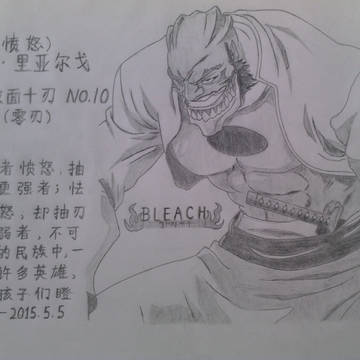 愤怒)
·里亚尔戈
面十刃 NO.10
(零刃)
者愤怒,抽
更强者;怯
怒,却抽刃
弱者,不可
的民族中,一
许多英雄,
孩子们瞪
-2015.5.5
BLEACH